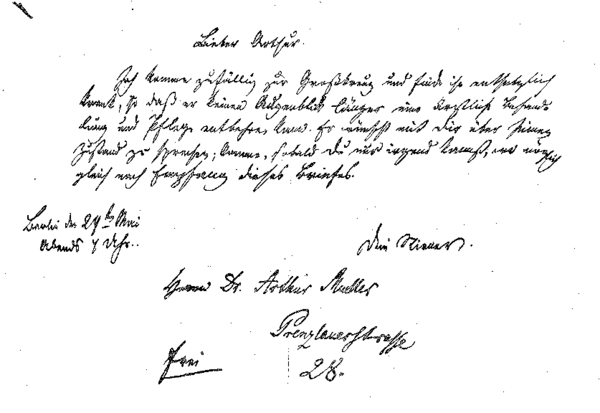 Lieber Arthur.
Ich komme zufällig zur Großkreuz und finde entsetzlich
krank, so daß er keinen Augenblick länger ärztliche Behand-
lung und Pflege entbehren kann. Er wünscht mit Dir über seinen
Zustand zu sprechen; komme, sobald Du nur irgend kannst, wo möglich
gleich nach Empfang dieses Briefes.
Berlin den 29ten Mai
Abends 7 Uhr..
Dein Stirner.
Herrn Dr. Arthur Mueller
Prenzlauerstrasse
Frei
28.